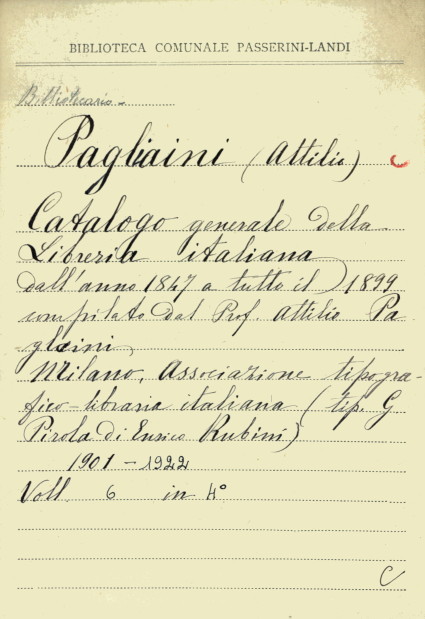 BIBLIOTECA COMUNALE PASSERINI-LANDI
Bibliotecario
Pagliaini (Attilio)
Catalogo generale della
Libreria italiana
dall'anno 1847 a tutto il 1899
compilato dal Prof. Attilio Pa
gliaini
Milano, Associazione tipogra-
fico-libraria italiana (tip. G.
Pirola di Enrico Rubini)
1901-1922
Voll. 6 in 4°
C